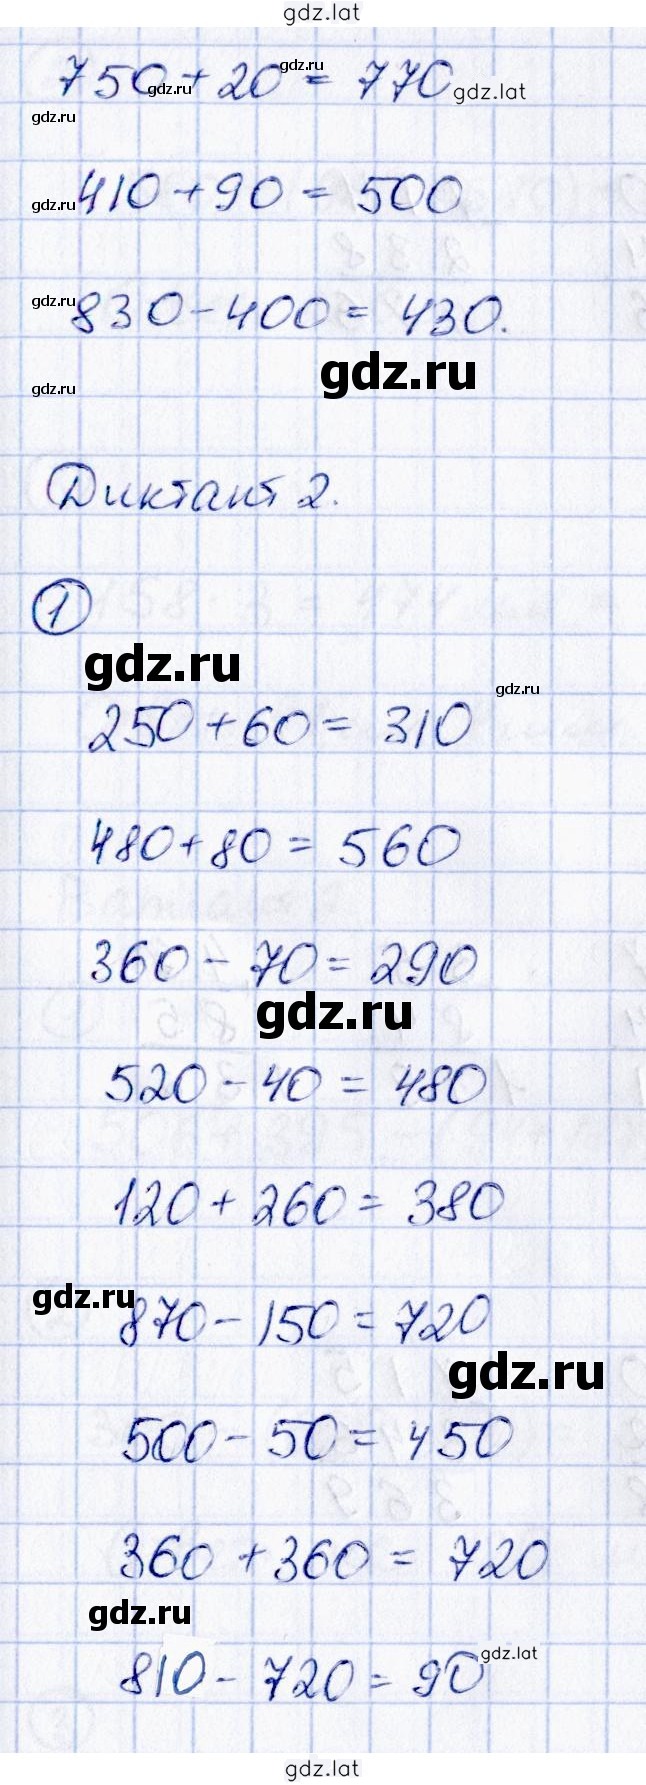 gdz.lat
gdz.ru
750 + 20 = 770
gdz.ru gdz.lat
gdz.ru
gdz.ru 410 + 90 = 500
gdz.ru 830 - 400 = 430.
gdz.ru
gdz.ru
Диктант 2.
1
gdz.ru
gdz.ru
250 + 60 = 310
480 + 80 = 560
360 - 70 = 290
gdz.ru
520 - 40 = 480
120 + 260 = 380
gdz.ru
870 - 150 = 720
gdz.ru
500 - 50 = 450
360 + 360 = 720
gdz.ru
gdz.lat
810 - 720 = 90
gdz.lat